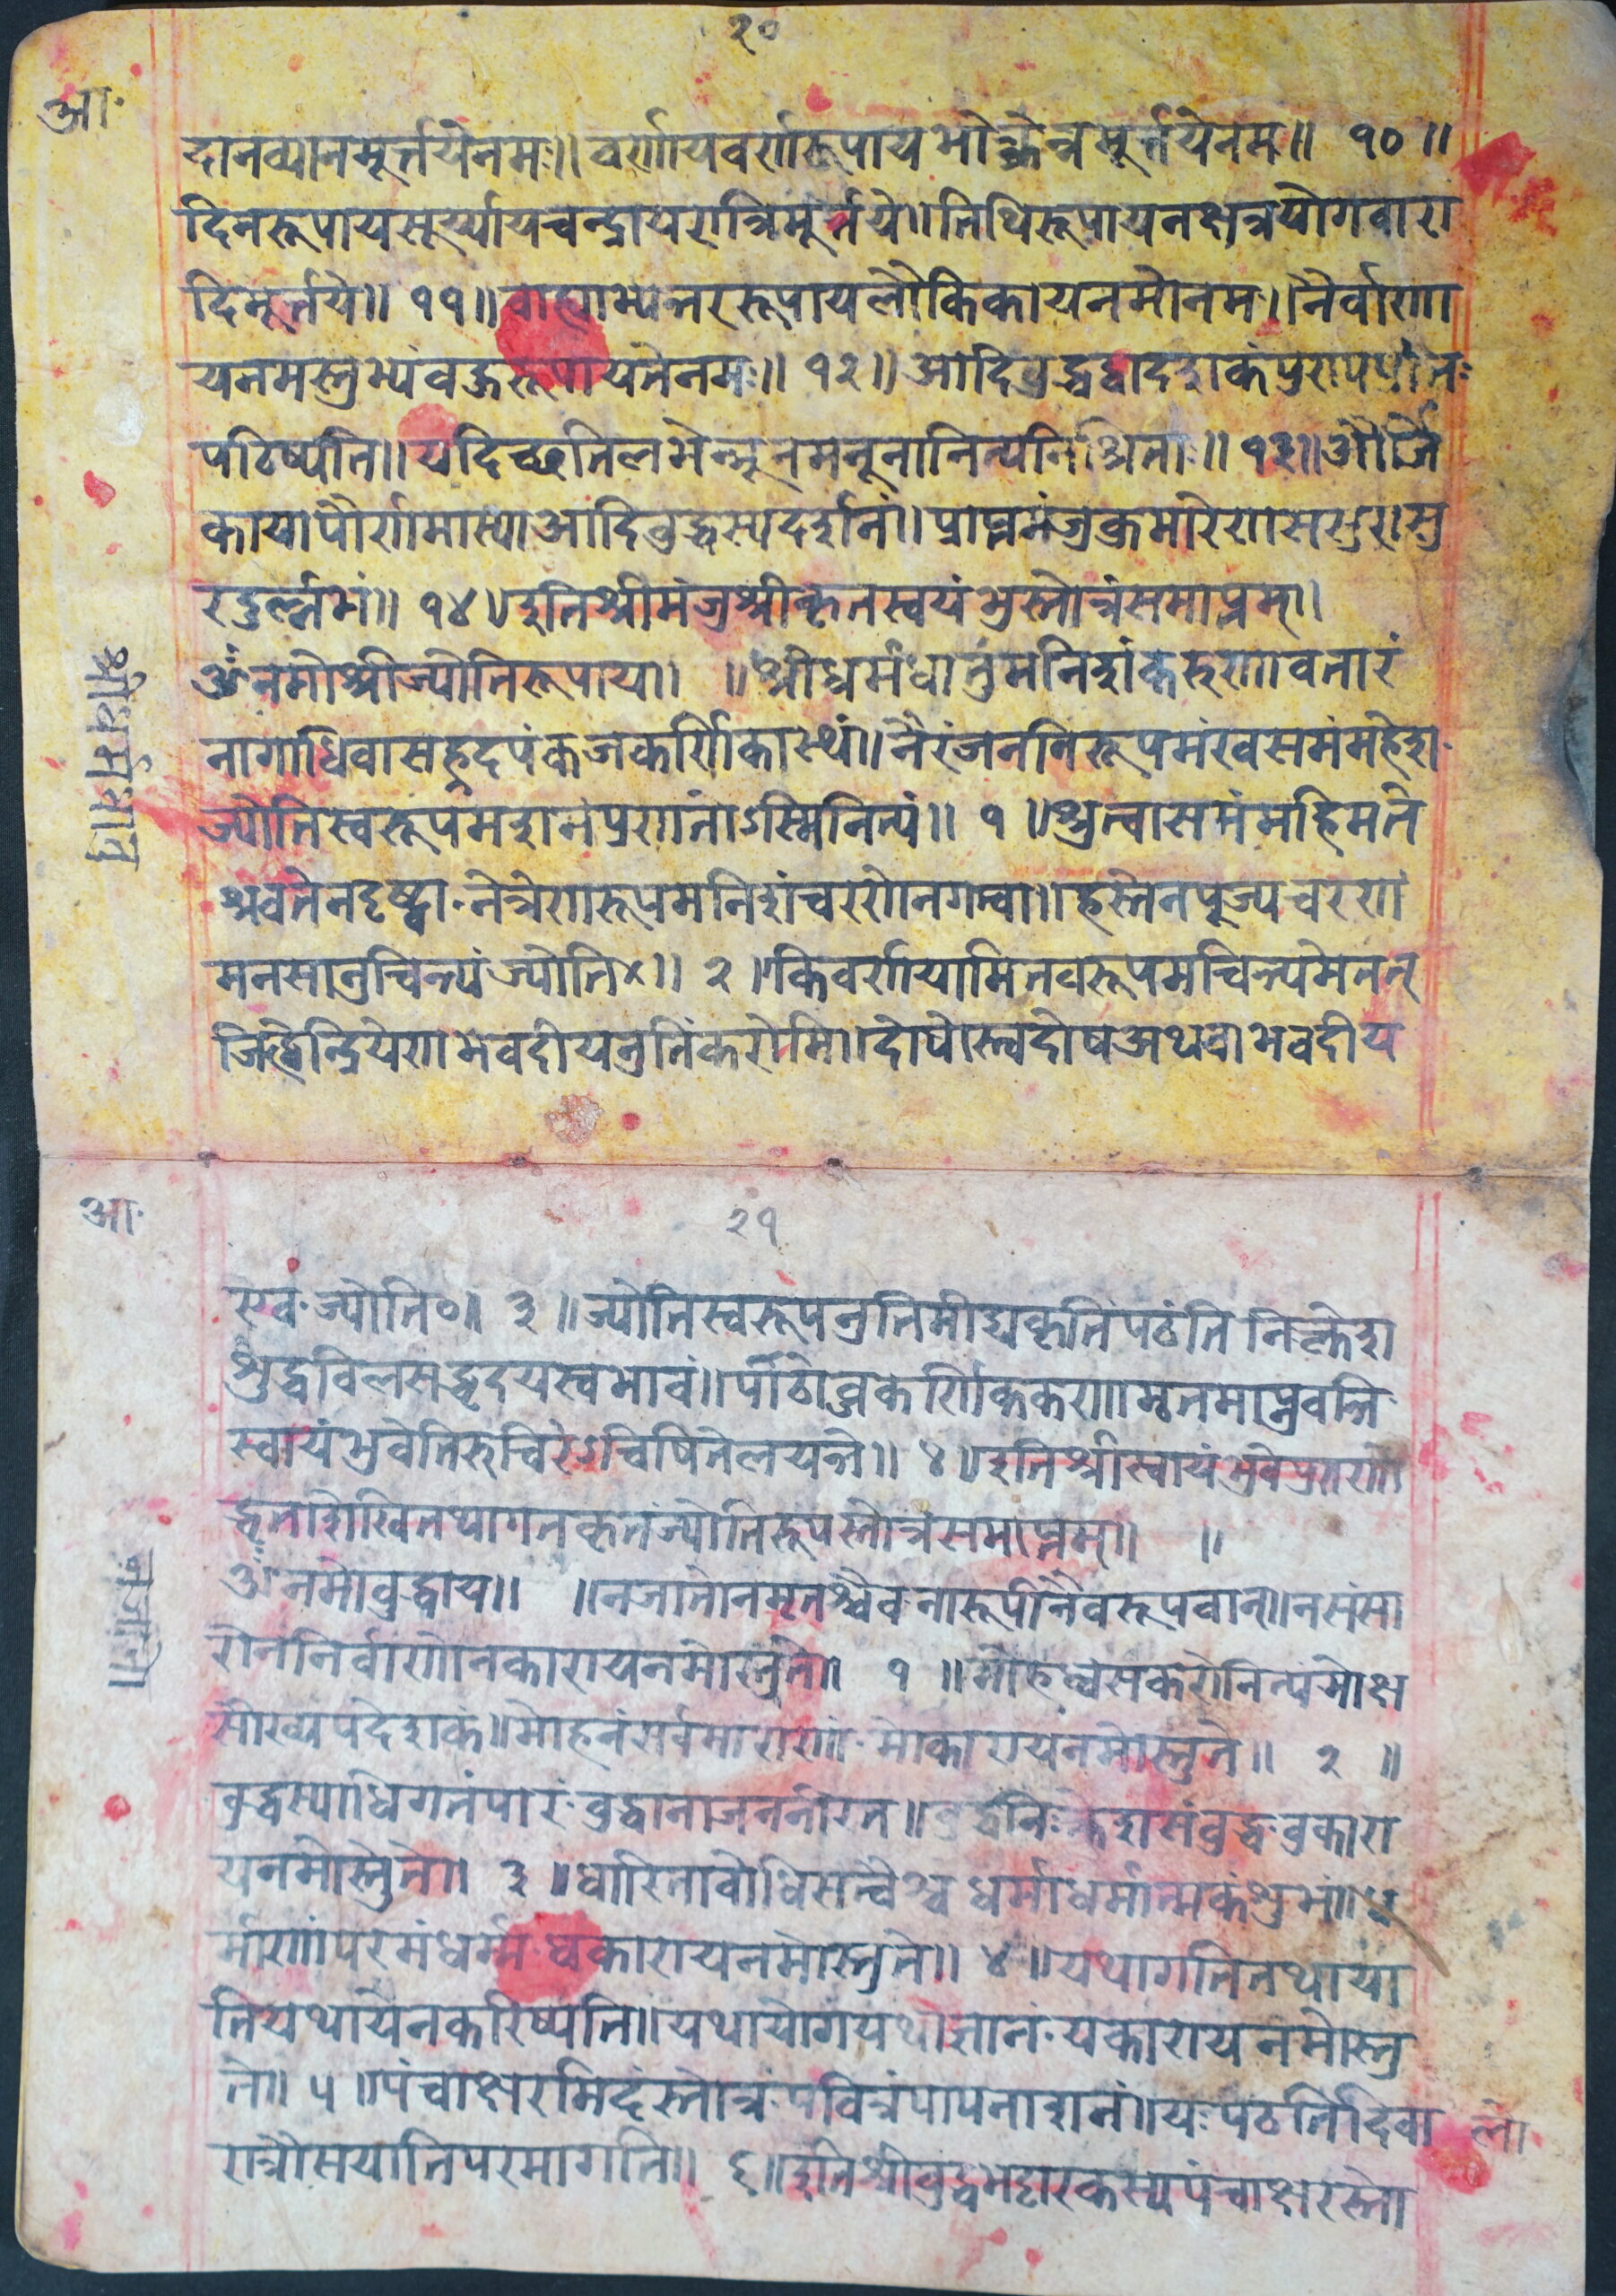 २०
आ·
दानव्यानमूर्त्तयेनमः॥वर्णायवर्णरूपायभोक्त्रेत्रमूर्त्तयेनमः॥ १० ॥
दिनरूपायसूर्य्यायचन्द्रायरात्रिमूर्तये॥तिथिरूपायनक्षत्रयोगवारा
दिमूर्त्तये॥ ११ ॥वाह्याभ्यन्तररूपायलौकिकायनमोनमः॥नैर्वाणा
यनमस्तुभ्यंवज्ररूपायतेनमः॥ १२ ॥आदिवुद्धद्वादशकंपुण्यप्रातः
पठिष्यति॥यदिच्छतिलभेन्नूनमनूनानित्यनिश्चिताः॥ १३॥और्जि
कायांपौर्णमास्यांआदिवुद्धस्यदर्शनं॥प्राप्तंमंजुकुमारेणससुरासु
रदुर्ल्लभं॥ १४ ॥इतिश्रीमंजुश्रीकृतस्वयंभुस्तोत्रंसमाप्तम्।
ॐनमोश्रीज्योतिरूपाय॥ ॥श्रीधर्मधातुमनिशंकरुणावतारं
नागाधिवासहृदपंकजकर्णिकास्थं॥नैरंजननिरूपमंखसमंमहेश·
ज्योतिस्वरूपमशनंप्रणतोऽस्मिनित्यं॥ १ ॥श्रुत्वासमंमहिमते
श्रवतेनदृष्ट्वा·नेत्रेणरूपमनिशंचरणेनगम्वा॥हस्तेनपूज्यचरण
मनसानुचिन्त्यंज्योति४॥ २ ॥किंवर्णयामितवरूपमचिन्त्यमेतत्
जिह्वेन्द्रियेणभवदीयनुतिंकरोमि॥दोषोस्त्वदोषअथवाभवदीय
श्रीधर्मधातु
आ·
२१
एव·ज्योति०॥ ३ ॥ज्योतिस्वरूपनुतिमीद्यकृतिंपठंतिनिःक्लेश
शुद्धविलसद्धृदयस्वभावं॥पीठोब्जकर्णिककणामृतमाप्नुवन्ति·
स्वायंभुवेतिरुचिरेऽचिषितेलयन्ते॥ ४ ॥इतिश्रीस्वायंभुवपुराणो
द्धृताशेखितथागतकृतंज्योतिरूपस्तोत्रंसमाप्तम्॥ ॥
ॐनमोवुद्धाय॥ ॥नजातोनमृतश्चैव·नारूपीनैवरूपवान्॥नसंसा
रोननिर्वाणोनकारायनमोस्तुते॥ १ ॥मोहध्वंसकरोनित्यंमोक्ष
सौख्यपदेशकं॥मोहनंसर्वमाराणां·मोकारायनमोस्तुते॥ २ ॥
वुद्धस्याधिगतंपारं·वुद्धानांजननीरत॥वुद्धनिःक्लेशसंवुद्ध·वुकारा
यनमोस्तुते॥ ३ ॥धारितावोधिसत्वैश्च धर्माधर्मात्मकंशुभं॥ध
र्माणांपरमंधर्म्म·धकारायनमोस्तुते॥ ४ ॥यथागतितथाया
तियथायेनकरिष्यति॥यथायोगंयथाज्ञानं·यकारायनमोस्तु
ते॥ ५ ॥पंचाक्षरमिदंस्तोत्रं·पवित्रंपापनाशनं॥यःपठतिदिवा
रात्रौसयातिपरमागतिं॥ ६॥इतिश्रीवुद्धभट्टारकस्यपंचाक्षरस्तो
नजातो